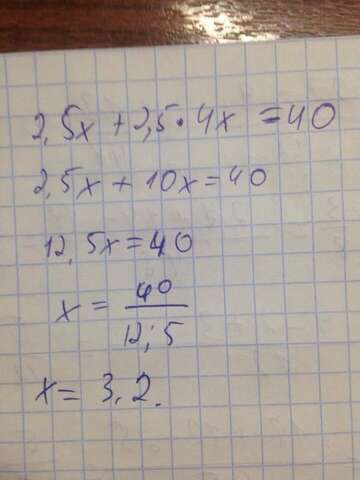 2,5x + 2,5 · 4x = 40
2,5x + 10x = 40
12,5x = 40
x = 40/12,5
x = 3,2.